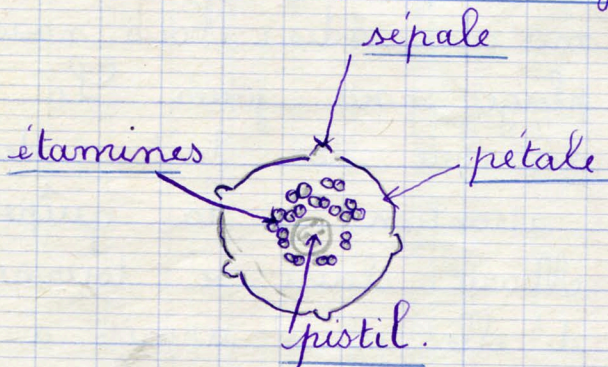 sépale
étamines
pétale
pistil.